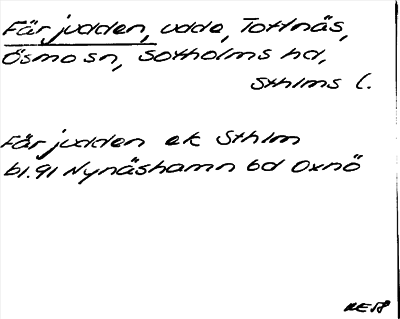 Fårjudden, udde, Tottnäs,
Ösmo sn, Sotholms hd,
Sthlms l.
Fårjudden ek Sthlm
bl.91 Nynäshamn bd Oxnö